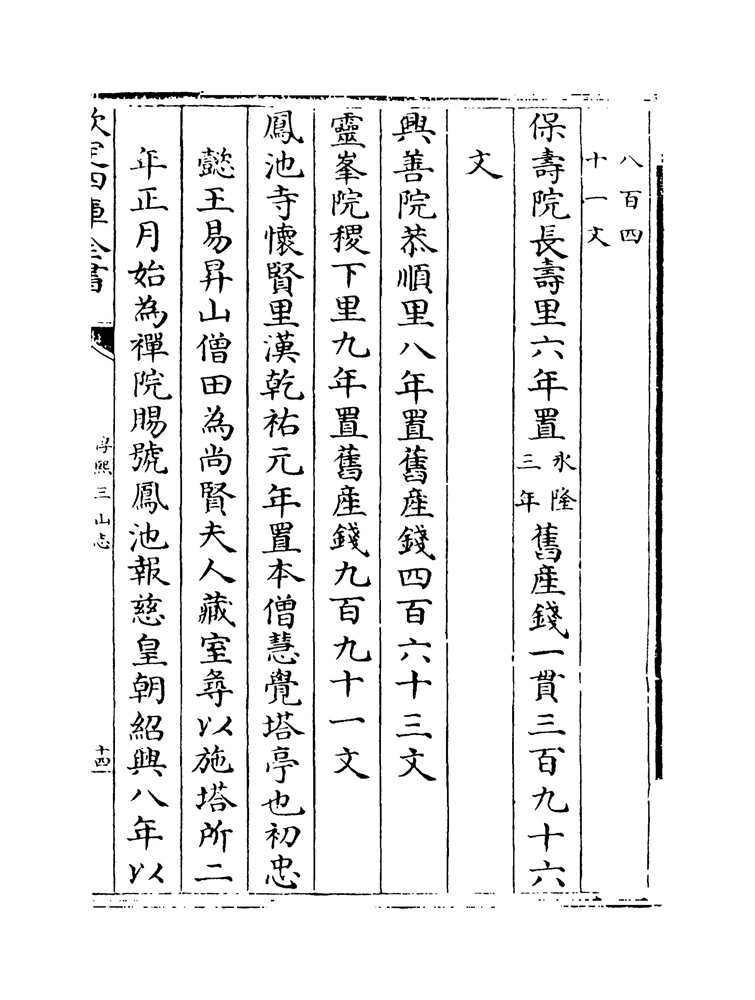 八百四
十一文
保壽院長壽里六年置永隆三年舊産錢一貫三百九十六
文
興善院恭順里八年置舊産錢四百六十三文
靈峯院稷下里九年置舊産錢九百九十一文
鳳池寺懷賢里漢乾祐元年置本僧慧覺塔亭也初忠
懿王易昇山僧田為尚賢夫人藏室尋以施塔所二
年正月始為禪院賜號鳳池報慈皇朝紹興八年以
欽定四庫全書
淳熙三山志
十四